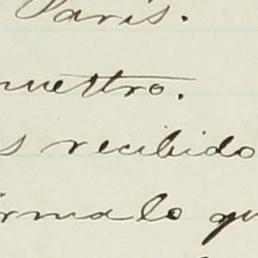 Paris.
nuestro.
s recibido
irmalo qu